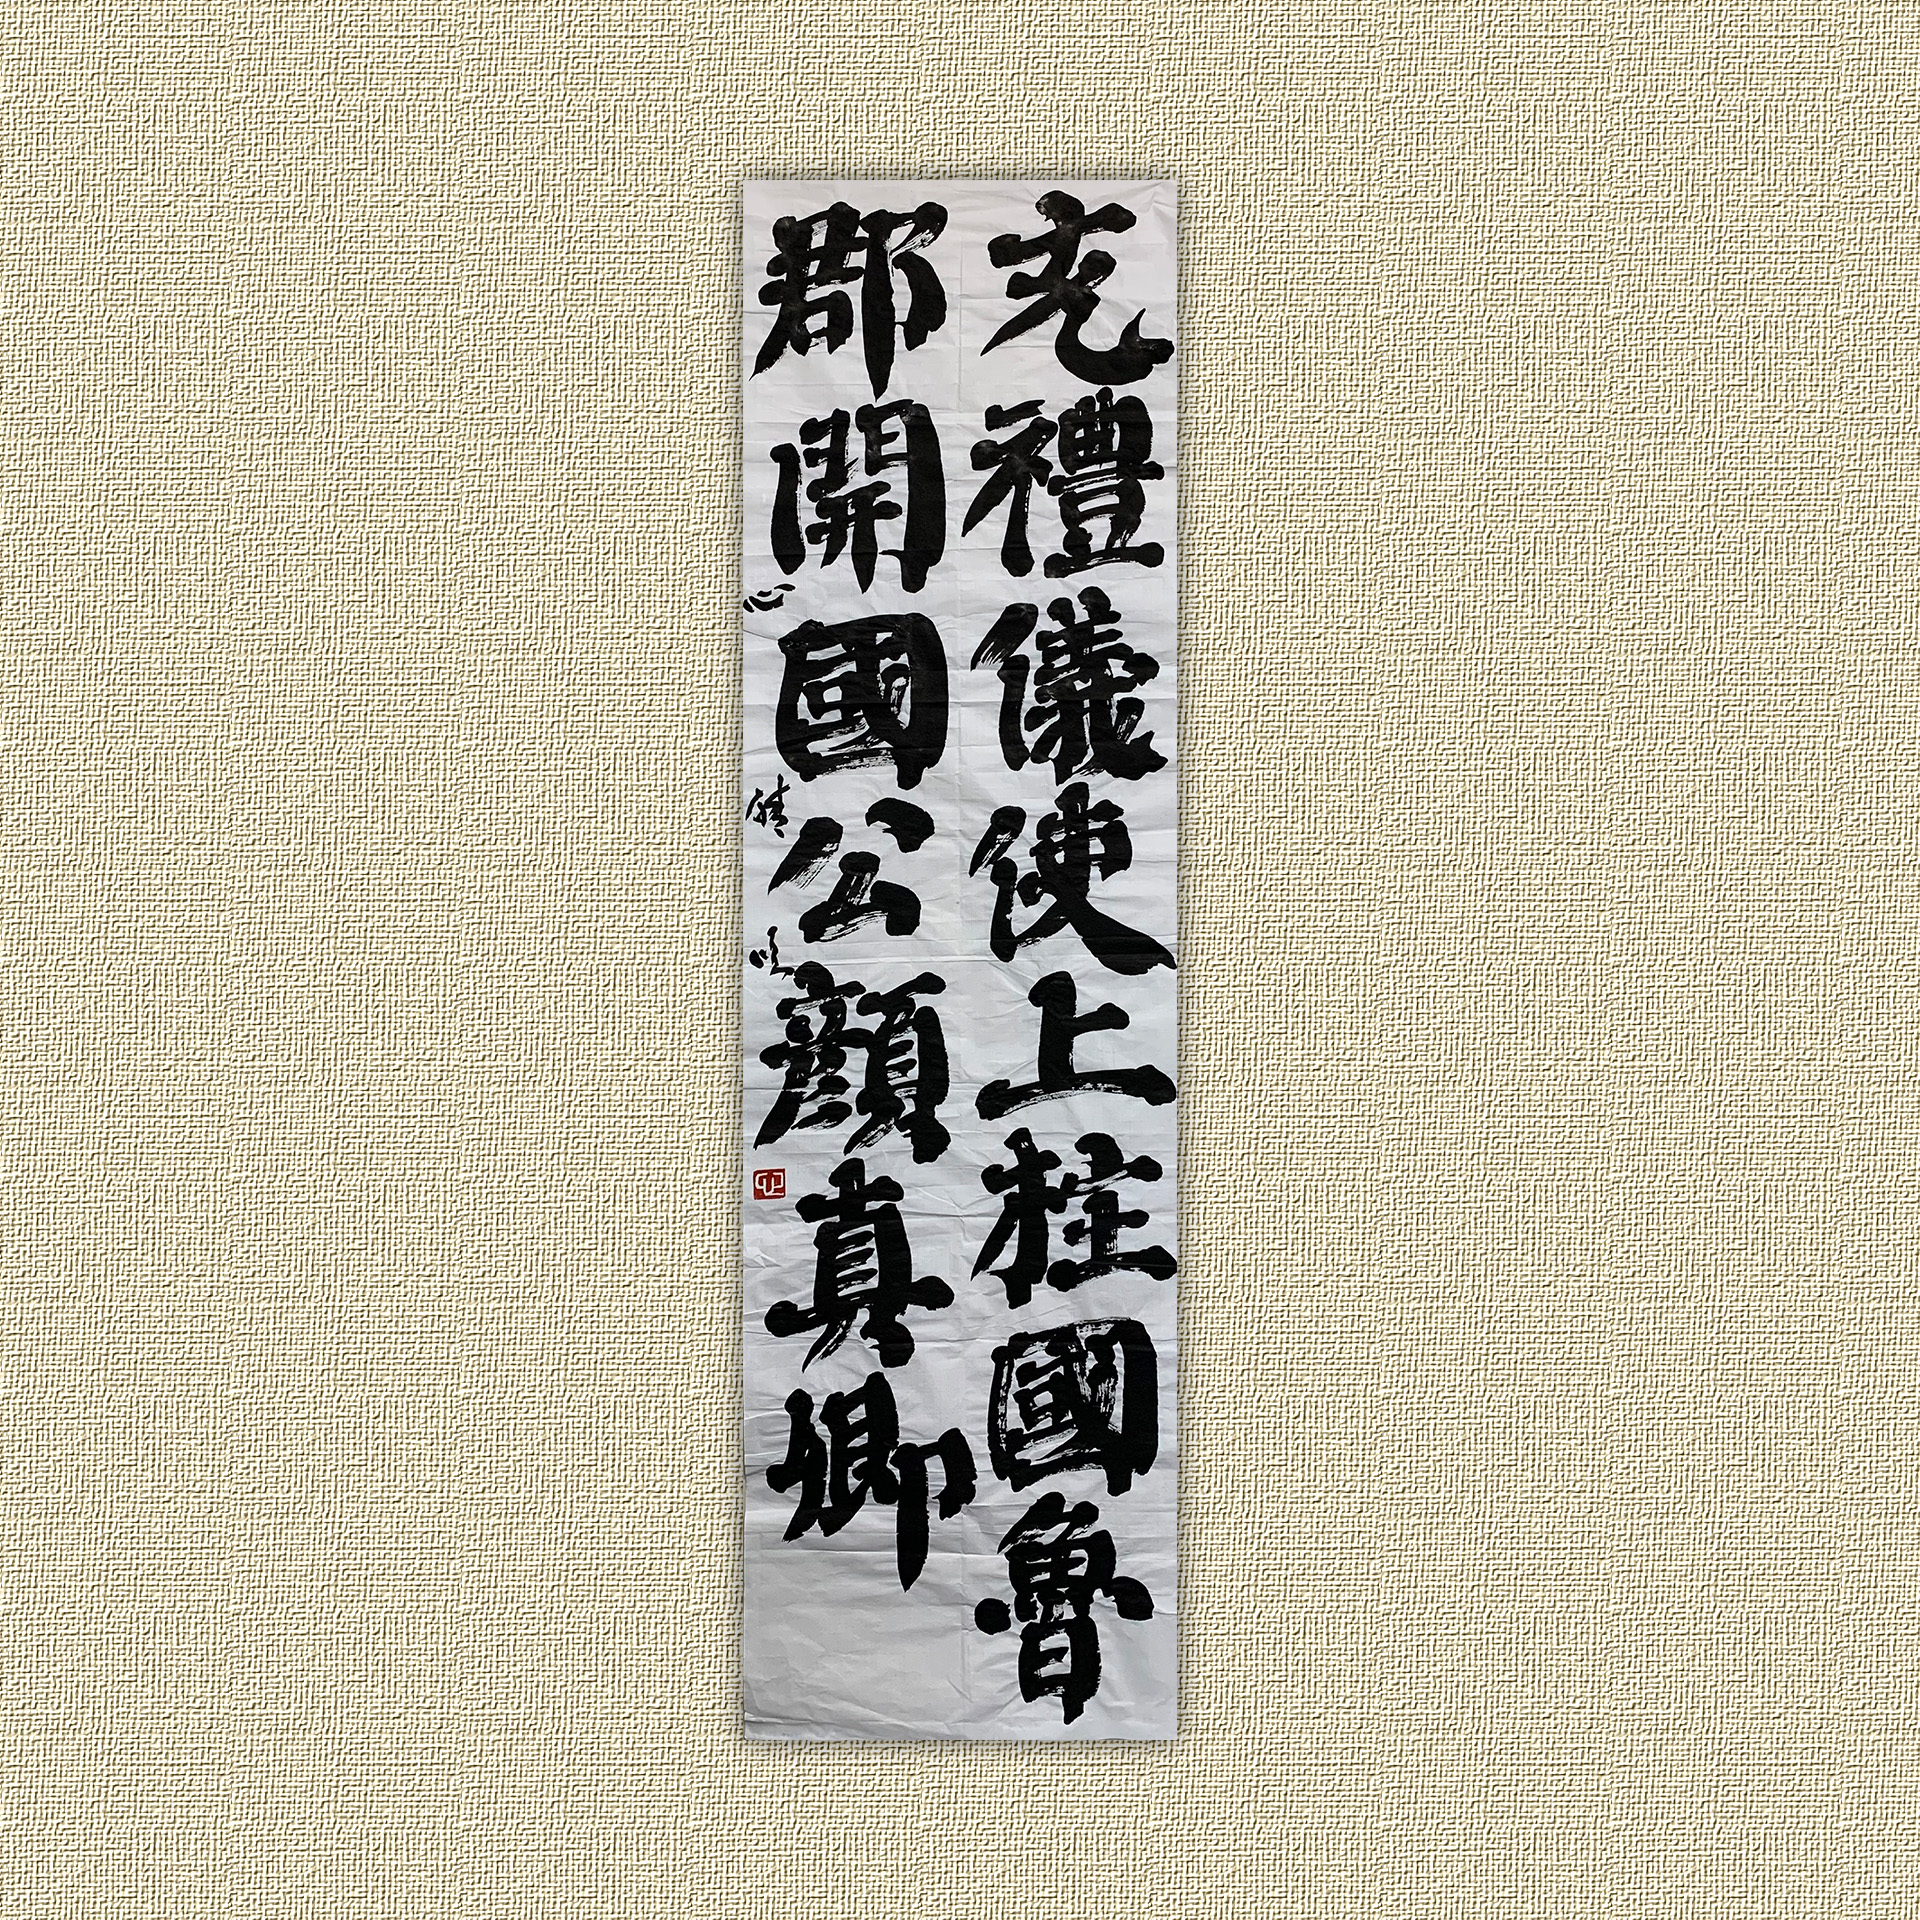 充禮儀使上柱國魯
郡開國公顏真卿
心